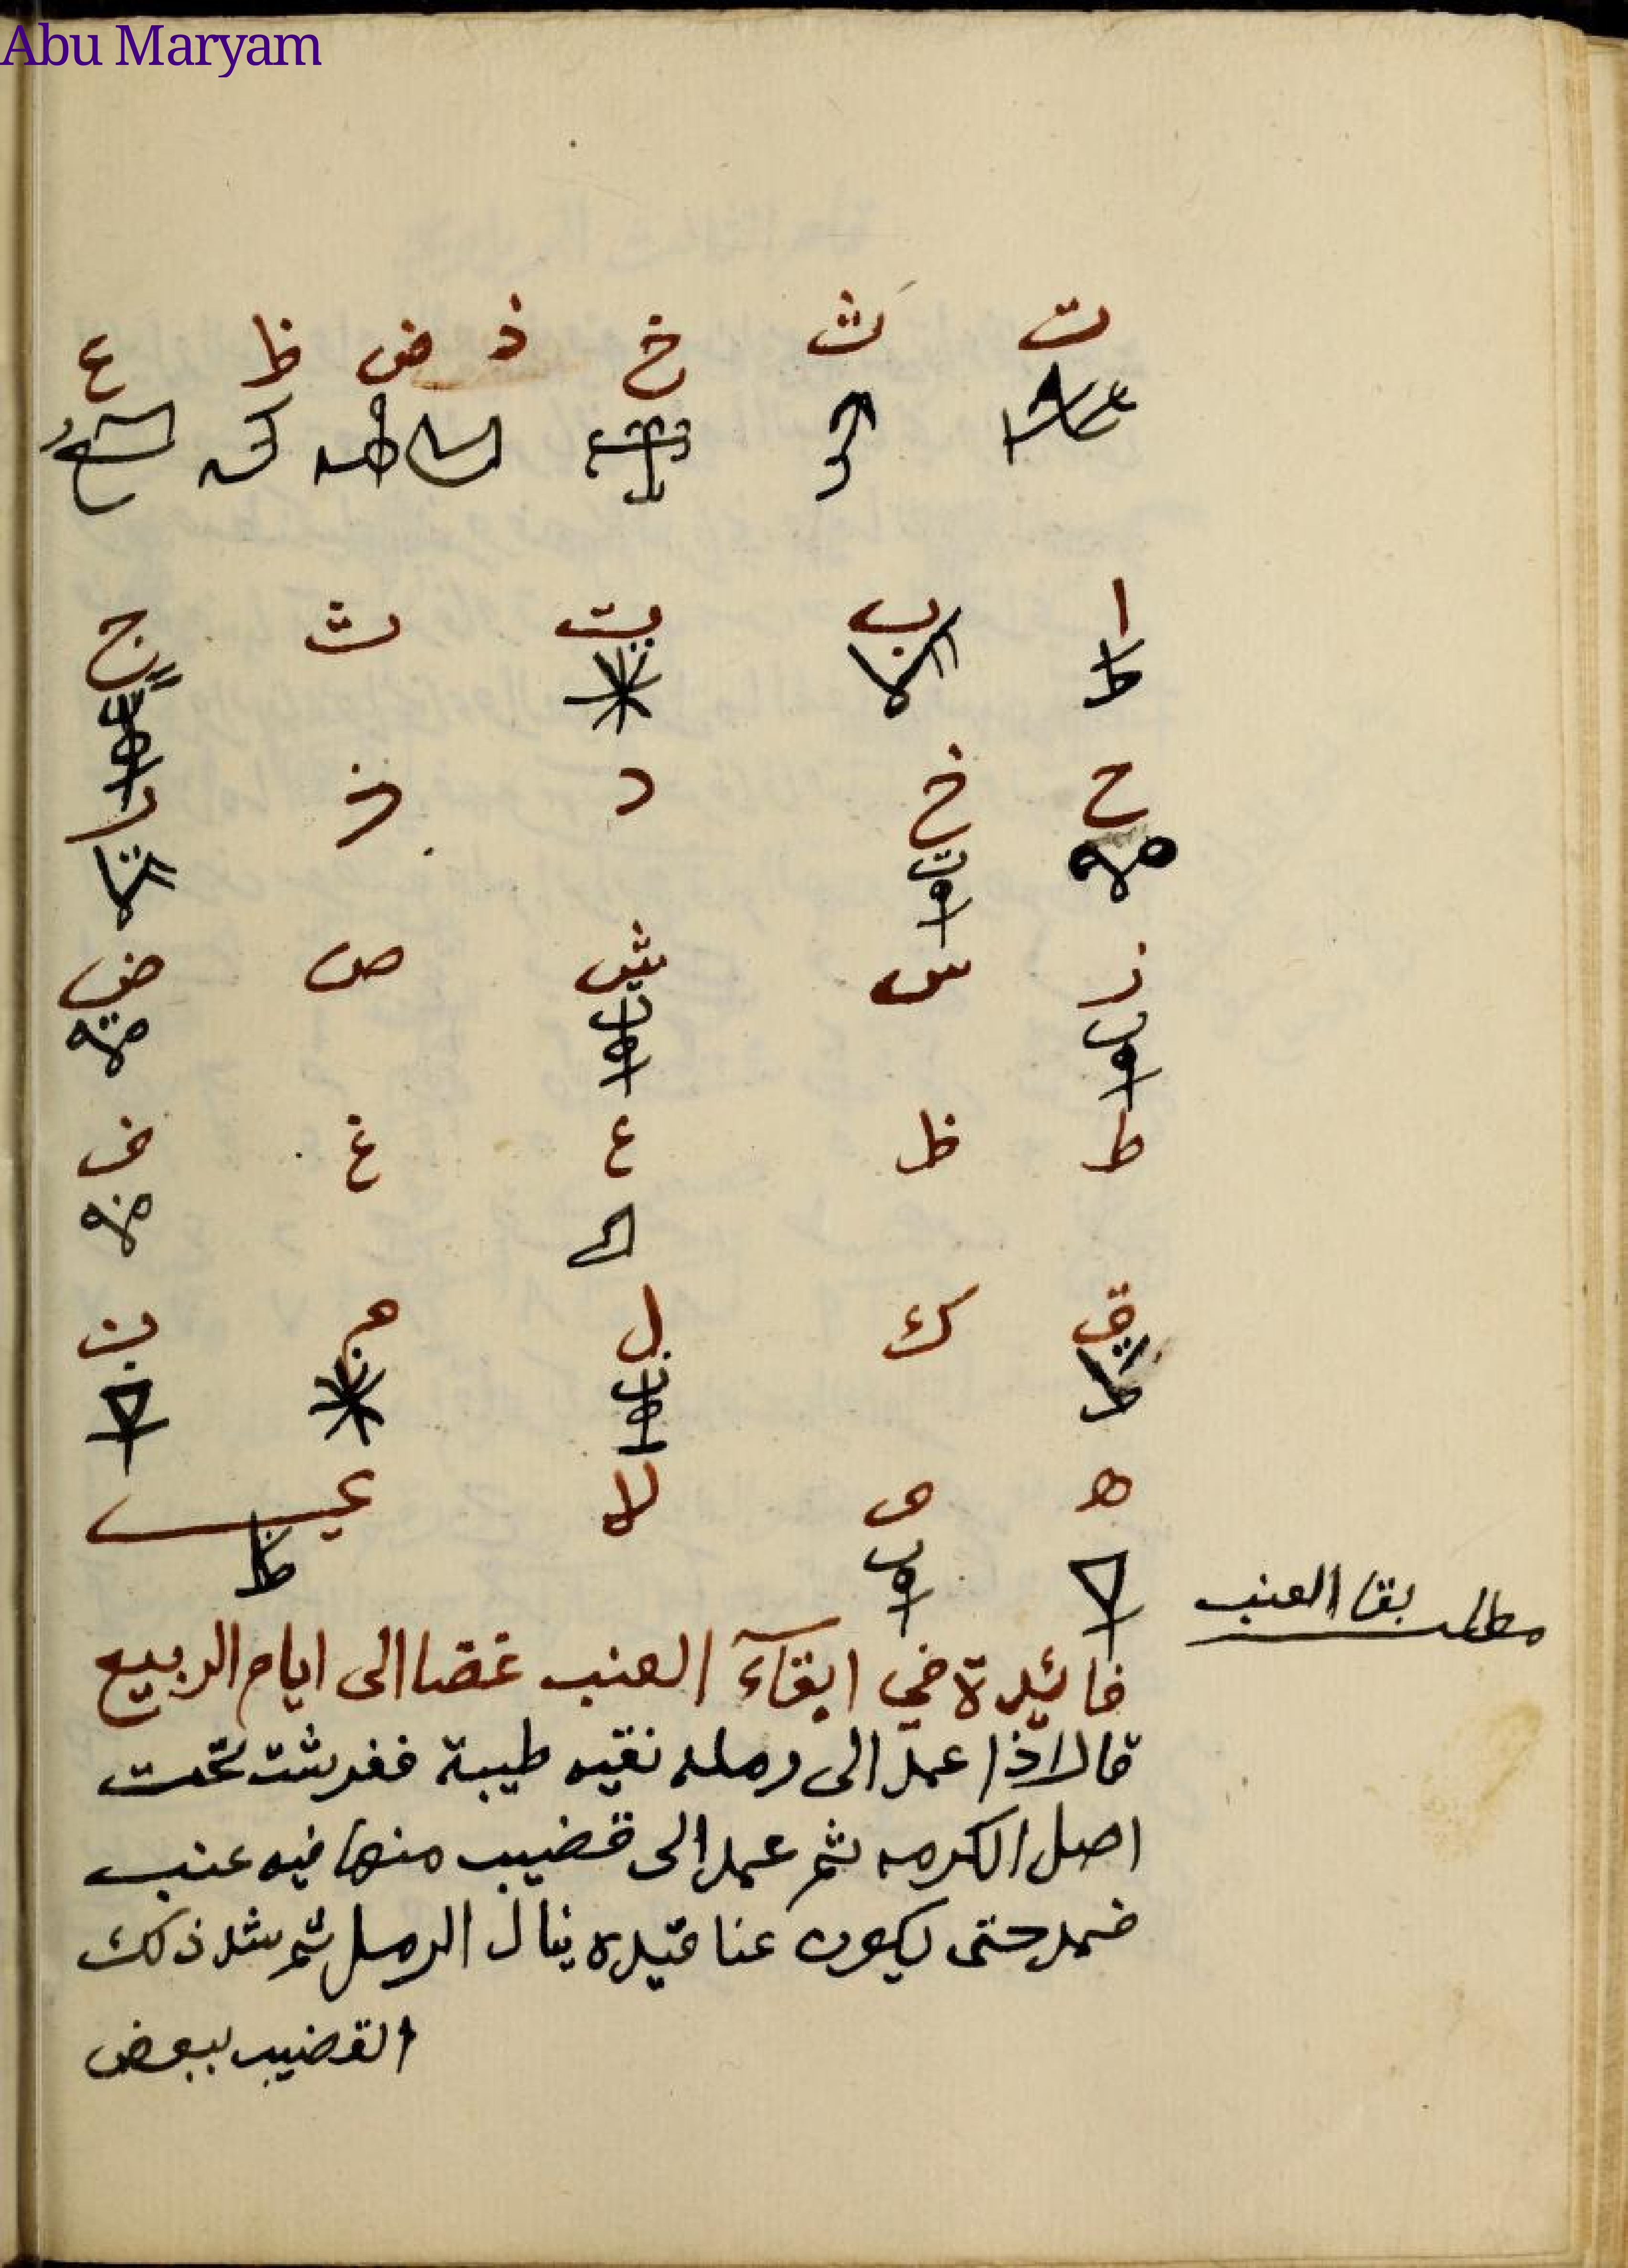 Abu Maryam
ت ث خ ذ ض ظ غ
ا ب ت ث ج
ح خ د ذ ر
ز س ش ص ض
ط ظ ع غ ف
ق ك ل م ن
ه و لا ي
مطلب بقا العنب
فائدة في ابقآء العنب غضا الى ايام الربيع
قال اذا عمد الى رمله نقيه طيبة ففرشت تحت
اصل الكرمه ثم عمد الى قضيب منها فيه عنب
فمد حتى يكون عناقيده ينال الرمل ثم شد ذلك
القضيب ببعض